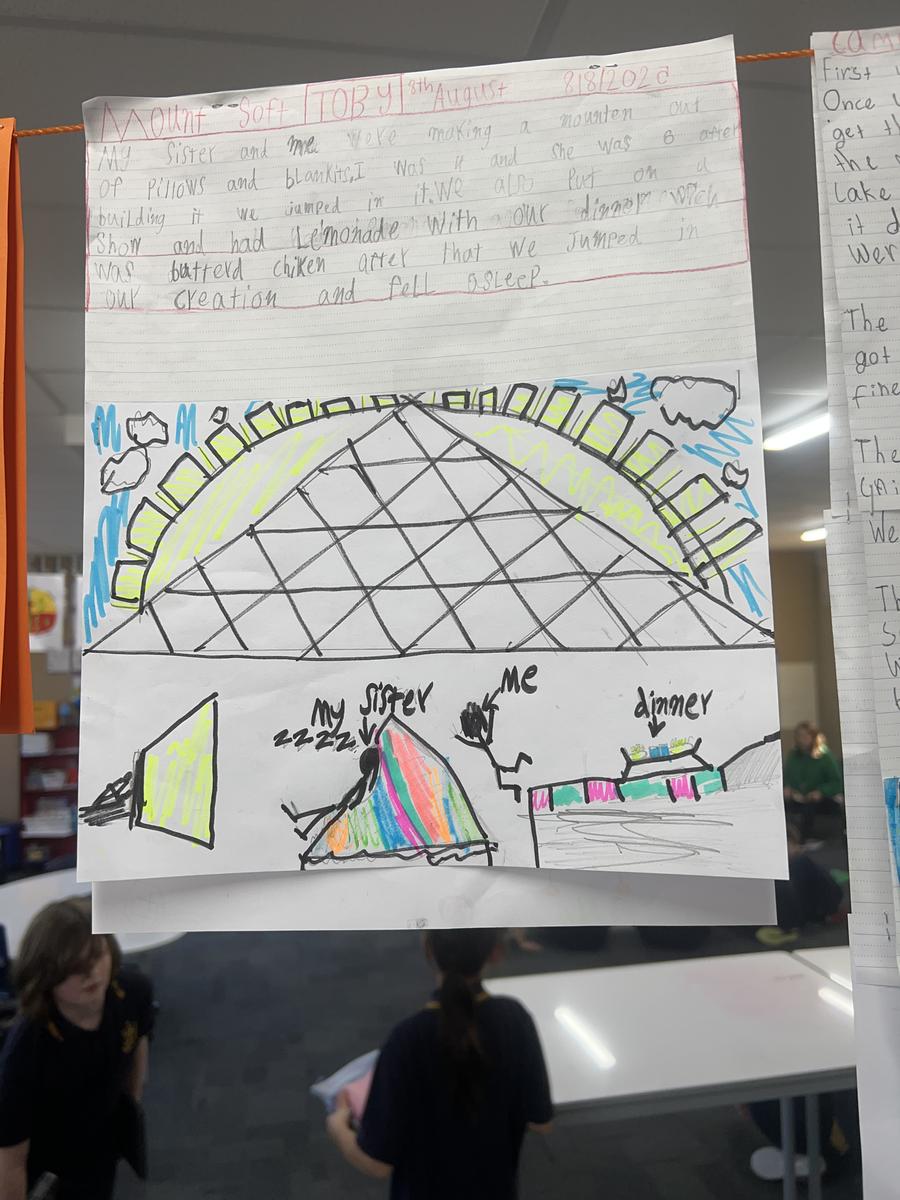 Mount Soft TOBY 8th August 8/8/202
My Sister and me were making a mounten out
of pillows and blankits,I was 11 and she was 6 after
building it we jumped in it.We also put on a
Show and had Lemonade with our dinner wich
was butterd chiken after that we Jumped in
our creation and fell asleep.
My Sister
zzzz
Me
dinner
First
Once
get
the
Lake
it
Wer
The
got
fine
The
We